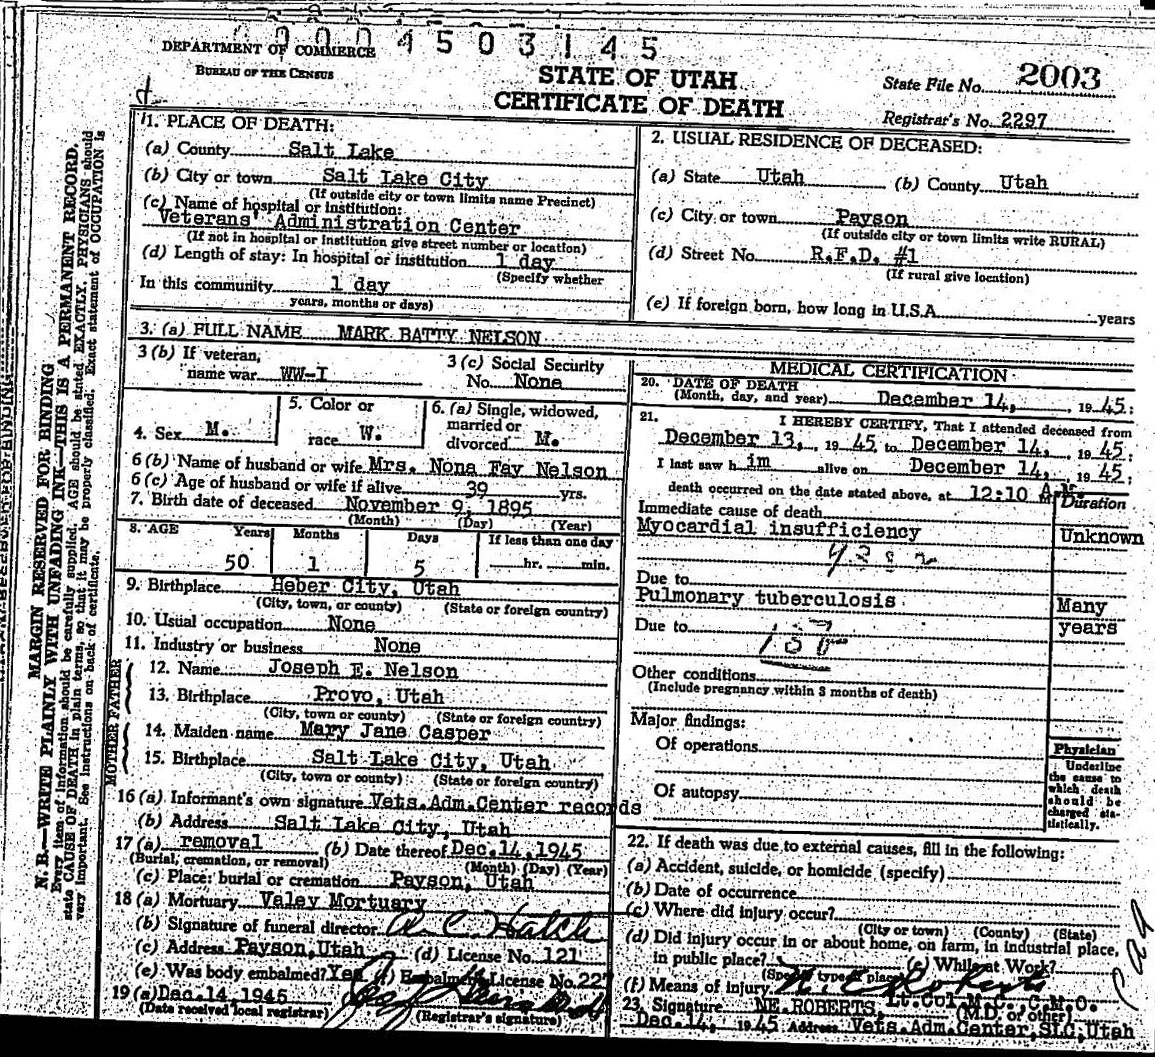 4503145
DEPARTMENT OF COMMERCE
BUREAU OF THE CENSUS
STATE OF UTAH
CERTIFICATE OF DEATH
State File No. 2003
Registrar's No. 2297
N. B.—WRITE PLAINLY WITH UNFADING INK—THIS IS A PERMANENT RECORD.
MARGIN RESERVED FOR BINDING
Every item of information should be carefully supplied. AGE should be stated EXACTLY. PHYSICIANS should
state CAUSE OF DEATH in plain terms, so that it may be properly classified. Exact statement of OCCUPATION is
very important. See instructions on back of certificate.
1. PLACE OF DEATH:
(a) County Salt Lake
(b) City or town Salt Lake City
(If outside city or town limits name Precinct)
(c) Name of hospital or institution:
Veterans' Administration Center
(If not in hospital or institution give street number or location)
(d) Length of stay: In hospital or institution 1 day
(Specify whether
In this community 1 day
years, months or days)
2. USUAL RESIDENCE OF DECEASED:
(a) State Utah (b) County Utah
(c) City or town Payson
(If outside city or town limits write RURAL)
(d) Street No. R.F.D. #1
(If rural give location)
(e) If foreign born, how long in U.S.A. years
3. (a) FULL NAME MARK BATTY NELSON
3 (b) If veteran, name war WW-I
3 (c) Social Security No. None
4. Sex M.
5. Color or race W.
6. (a) Single, widowed, married or divorced M.
6 (b) Name of husband or wife Mrs. Nona Fay Nelson
6 (c) Age of husband or wife if alive 39 yrs.
7. Birth date of deceased November 9, 1895
(Month) (Day) (Year)
8. AGE Years Months Days If less than one day
50 1 5 hr. min.
9. Birthplace Heber City, Utah
(City, town, or county) (State or foreign country)
10. Usual occupation None
11. Industry or business None
FATHER
12. Name Joseph E. Nelson
13. Birthplace Provo, Utah
(City, town or county) (State or foreign country)
MOTHER
14. Maiden name Mary Jane Casper
15. Birthplace Salt Lake City, Utah
(City, town or county) (State or foreign country)
16 (a) Informant's own signature Vets.Adm.Center records
(b) Address Salt Lake City, Utah
17 (a) removal (b) Date thereof Dec.14,1945
(Burial, cremation, or removal) (Month) (Day) (Year)
(c) Place: burial or cremation Payson, Utah
18 (a) Mortuary Valey Mortuary
(b) Signature of funeral director A. C. Hatch
(c) Address Payson,Utah (d) License No. 121
(e) Was body embalmed? Yes (f) Embalmer's License No. 227
19 (a) Dec.14,1945
(Date received local registrar) (Registrar's signature)
MEDICAL CERTIFICATION
20. DATE OF DEATH
(Month, day, and year) December 14, 1945:
21. I HEREBY CERTIFY, That I attended deceased from
December 13, 1945 to December 14, 1945:
I last saw him alive on December 14, 1945:
death occurred on the date stated above, at 12:10 A.M.
Duration
Immediate cause of death
Myocardial insufficiency Unknown
Due to
Pulmonary tuberculosis Many
Due to years
Other conditions
(Include pregnancy within 3 months of death)
Major findings:
Of operations
Of autopsy
Physician
Underline
the cause to
which death
should be
charged sta-
tistically.
22. If death was due to external causes, fill in the following:
(a) Accident, suicide, or homicide (specify)
(b) Date of occurrence
(c) Where did injury occur?
(City or town) (County) (State)
(d) Did injury occur in or about home, on farm, in industrial place,
in public place? (e) While at Work?
(Specify type of place)
(f) Means of injury N. E. Roberts
23. Signature NE. ROBERTS, Lt.Col.M.C. C.M.O.
(M.D. or other)
Dec.14, 1945 Address Vets.Adm.Center,SLC,Utah